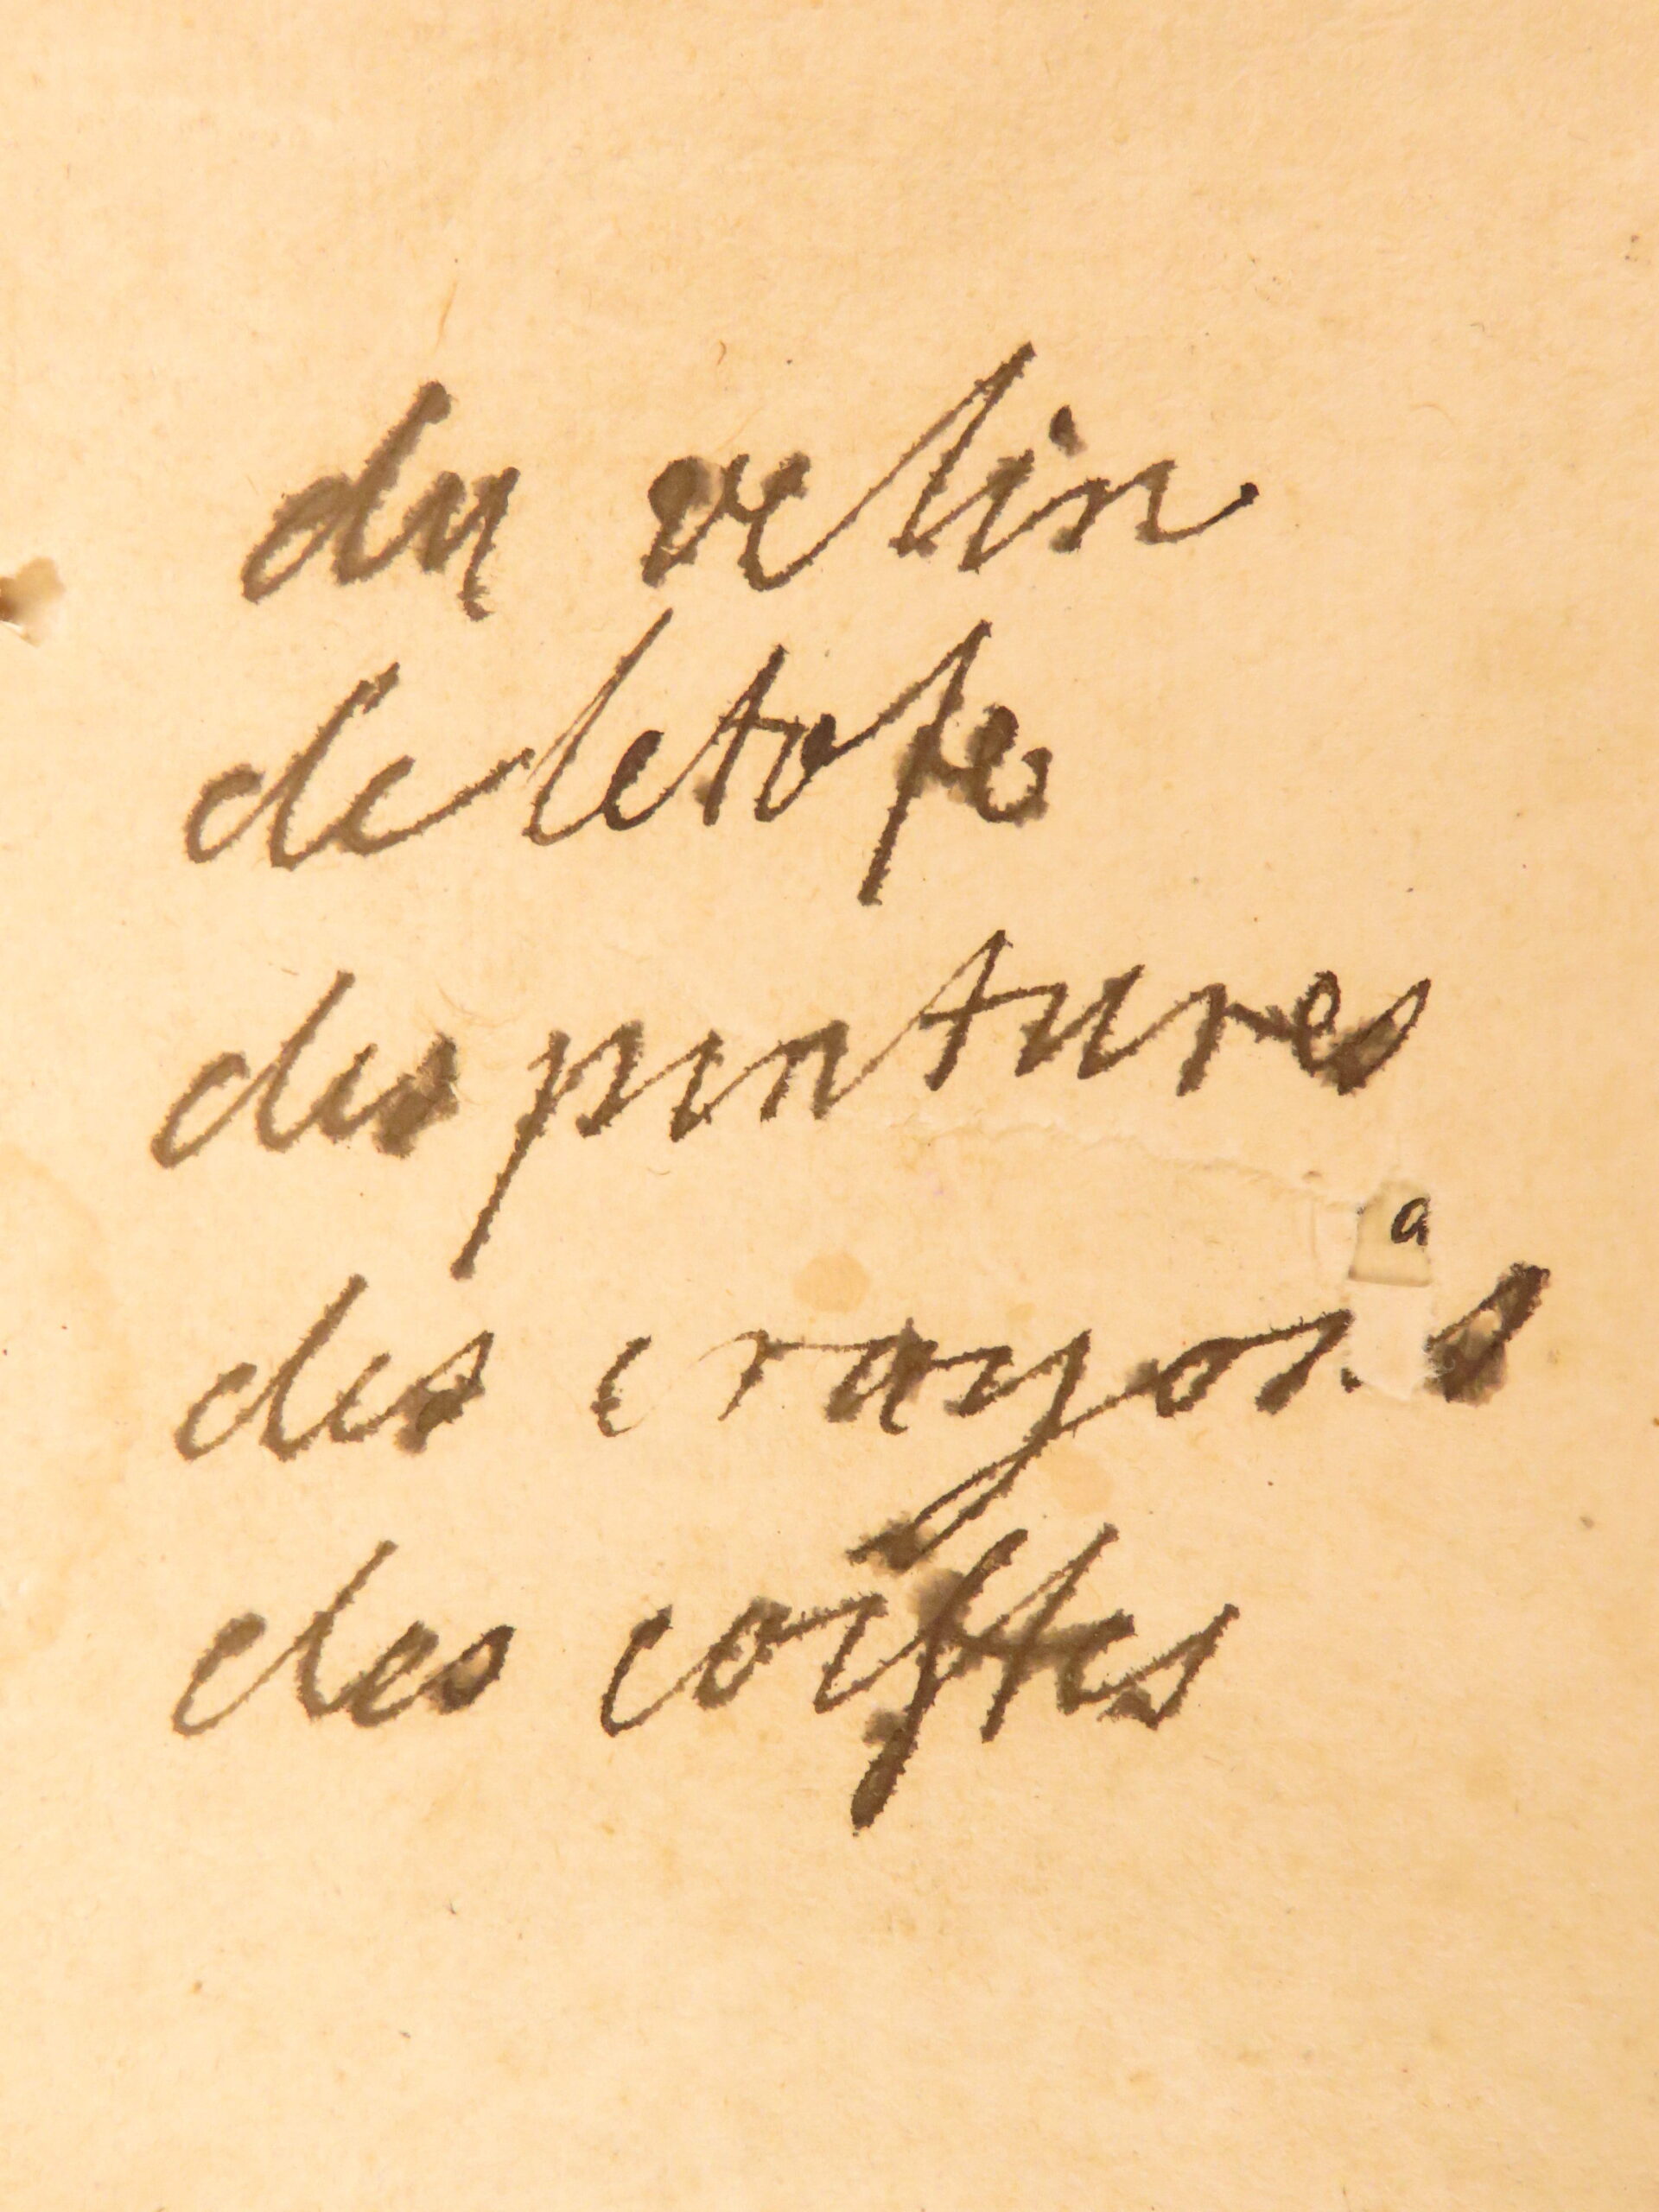 du velin
de letofe
des pintures
a
des crayons
des coiffes